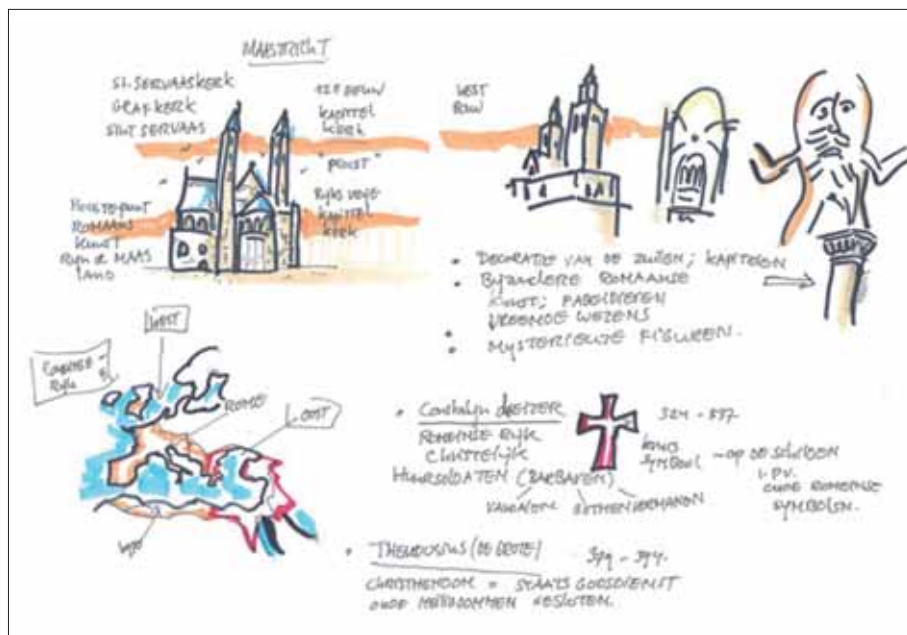 MAASTRICHT
ST. SERVAASKERK
GRAFKERK
SINT SERVAAS
12E EEUW
KAPITTEL
KERK
"PROOST"
RIJKS VRIJE
KAPITTEL
KERK
HOOGTEPUNT
ROMAANS
KUNST
RIJN & MAAS
LAND
WEST
BOUW
• DECORATIE VAN DE ZUILEN; KAPITELEN
• BIJZONDERE ROMAANSE
KUNST; FABELDIEREN
VREEMDE WEZENS
• MYSTERIEUZE FIGUREN.
WEST
ROMEINSE
RIJK
ROME
OOST
• CONSTANTIJN DE
ROMEINSE RIJK
CHRISTELIJK
HUURSOLDATEN (BARBAREN)
VANDALEN GOTHEN GERMANEN
324 - 337
KRUIS
SYMBOOL - OP DE SCHILDEN
I.PV.
OUDE ROMEINSE
SYMBOLEN.
• THEODOSIUS (DE GROTE) 379 - 394.
CHRISTENDOM = STAATSGODSDIENST
OUDE HEILIGDOMMEN GESLOTEN.